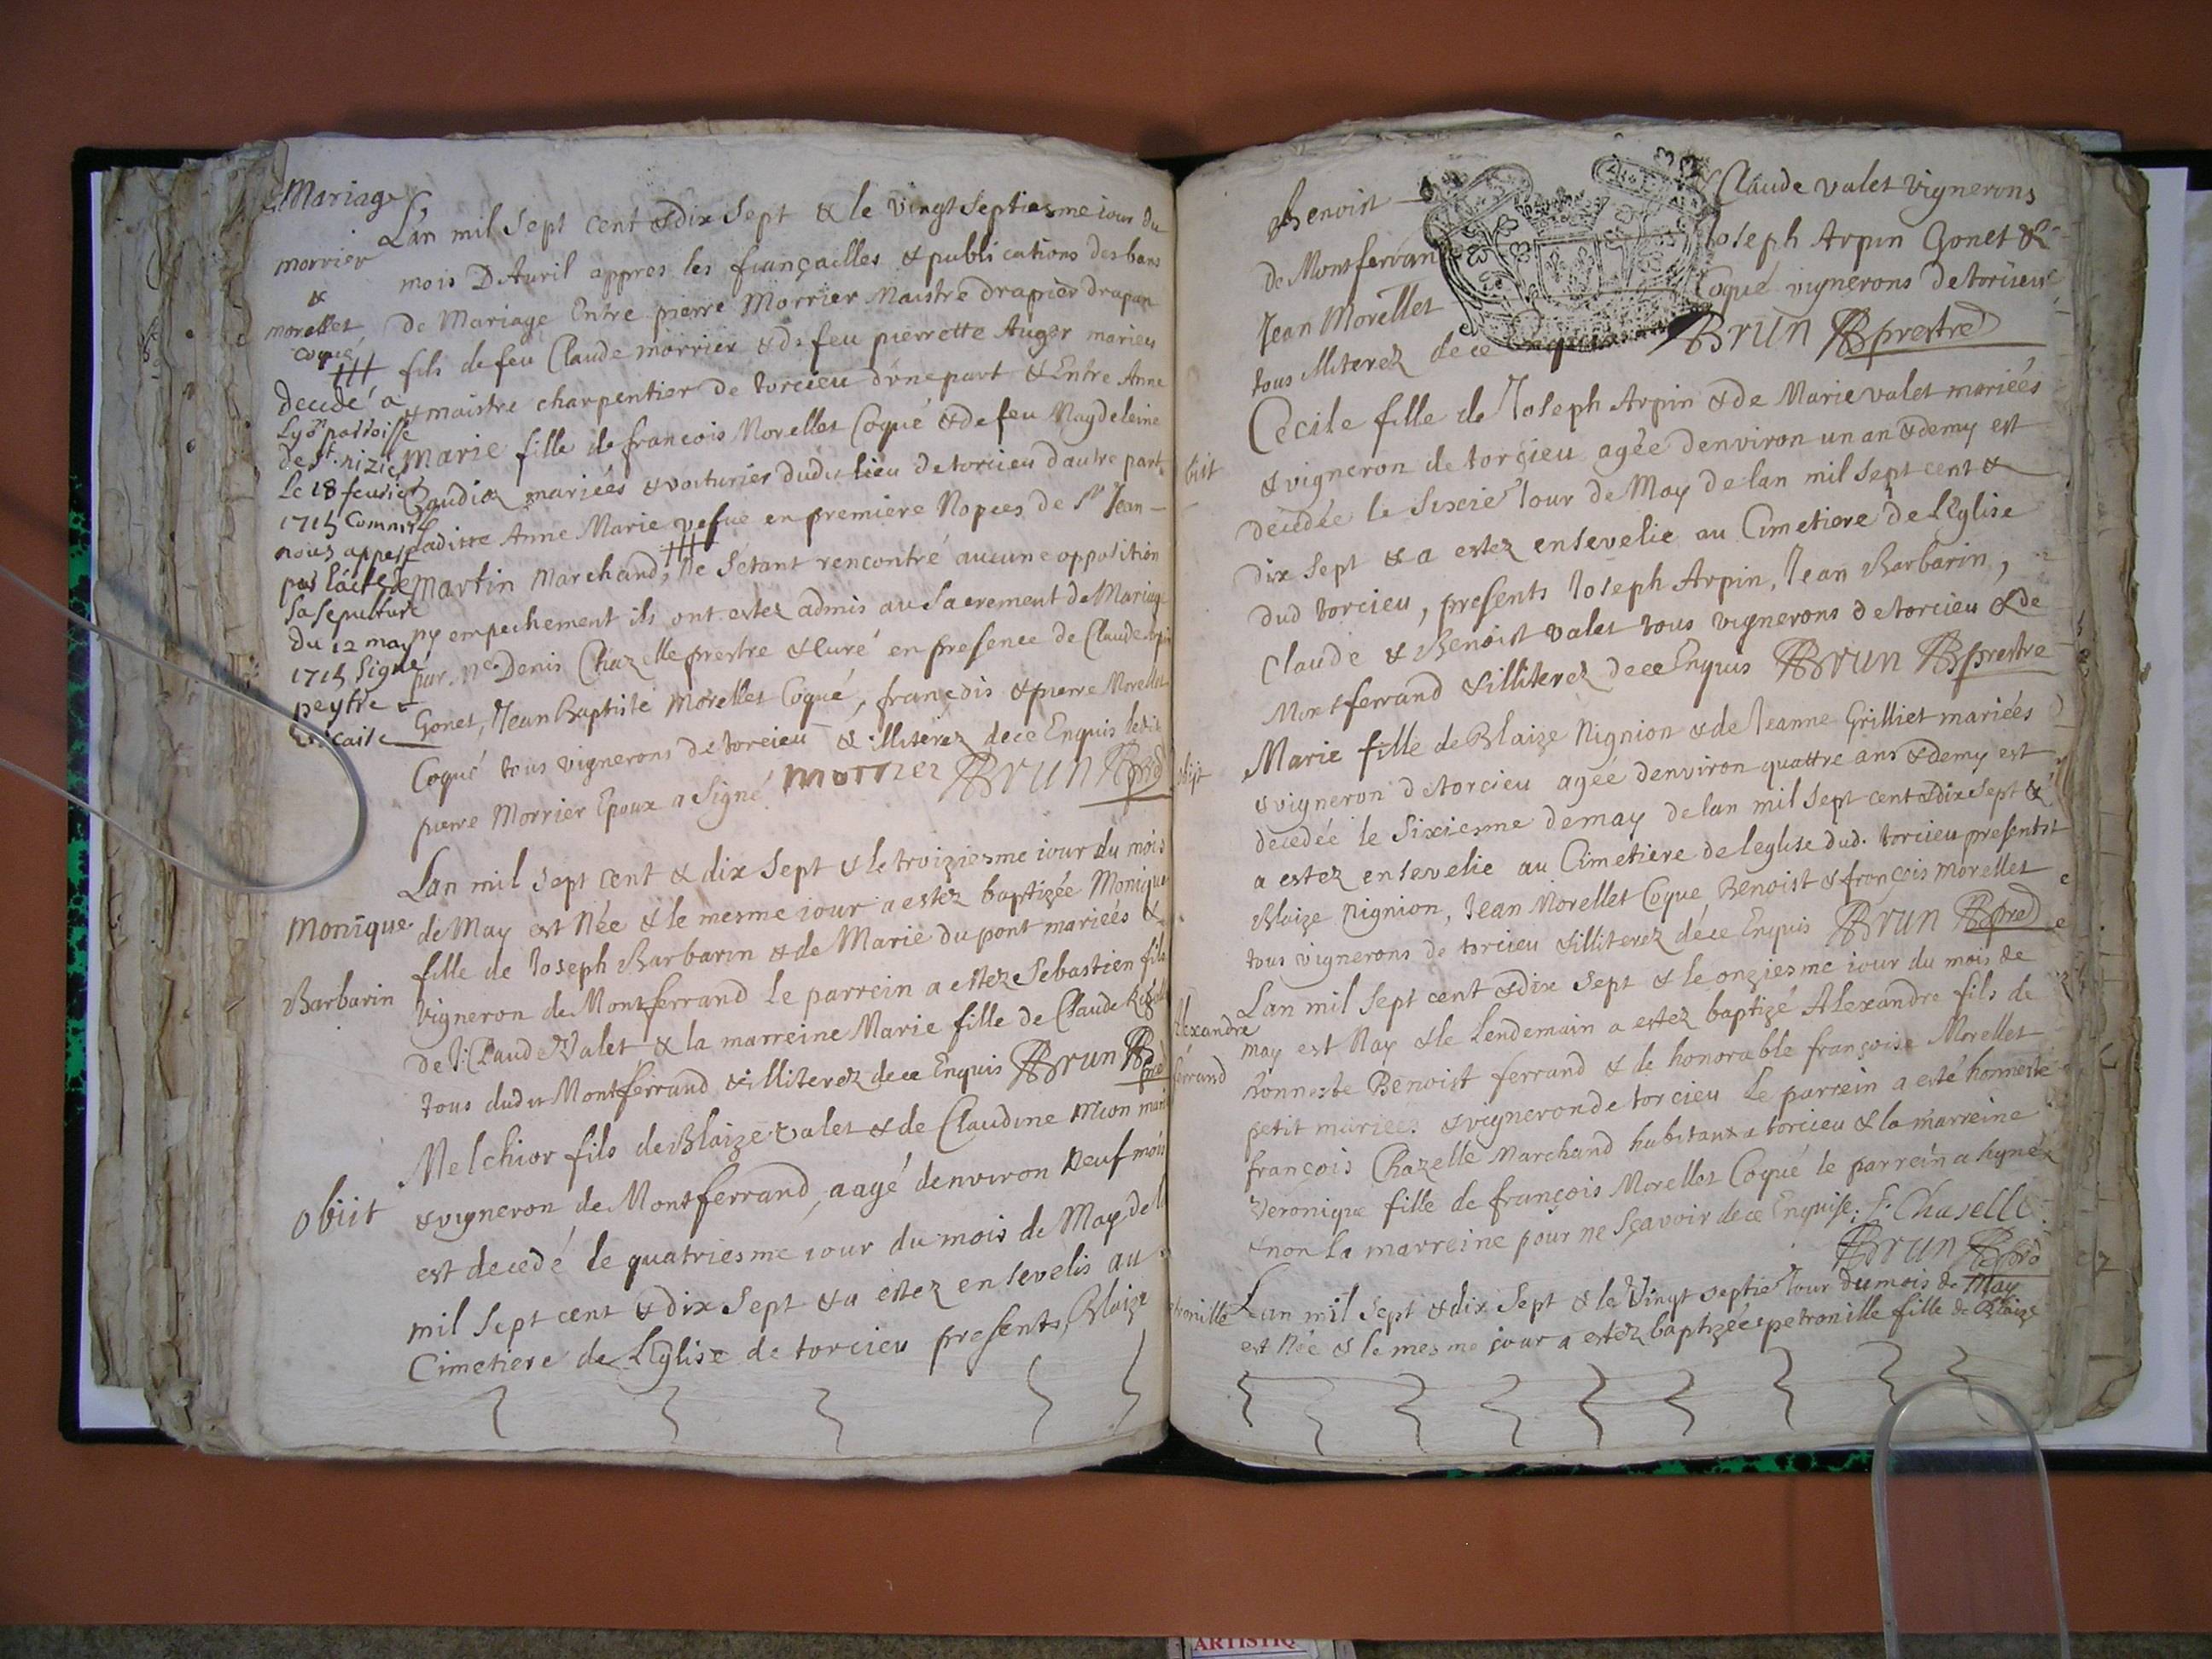 Mariage
morrier
&
morellet
coqué
decedé a
Lyon parroisse
de St. nizier
Le 18 feurier
1715 Comme
nous appert
par l'acte de
Sa sepulture
du 12 may
1715 Signé
peytre
Vicaire
Lan mil Sept Cent & dix Sept & le vingt Septiesme iour du
mois D'Auril appres les fiançailles & publications des bans
de Mariage Entre pierre Morrier Maistre drapier drapan
fils de feu Claude morrier & de feu pierrette Auger mariez
& maistre charpentier de torcieu d'une part & Entre Anne
Marie fille de francois Morellet Coqué & de feu Magdeleine
mariées & voiturier dudit lieu de torcieu dautre part
Laditte Anne Marie vefue en premiere Nopces de St Jean
Martin Marchand, Ne S'étant rencontré aucune opposition
ny empechement ils ont estez admis au Sacrement de Mariage
par Me Denis Chazelle prestre & Curé en presence de Claude Arpin
Gonet, Jean Baptiste Morellet Coqué, francois & pierre Morellet
Coqué tous vignerons de torcieu & illiterez de ce Enquis ledit
pierre Morrier Epoux a Signé morrier Brun pre
Monique
Barbarin
Lan mil Sept Cent & dix Sept & le troiziesme iour du mois
de May est Née & le mesme iour a estez baptizée Monique
fille de Joseph Barbarin & de Marie du pont mariées &
Vigneron de Montferrand Le parrein a estez Sebastien fils
de Claude Valet & la marreine Marie fille de Claude
tous dudit Montferrand & illiterez de ce Enquis Brun pre
obiit
Melchior fils de Blaize valet & de Claudine Mion
& vigneron de Montferrand, aagé denviron Neuf mois
est decedé le quatriesme iour du mois de May de
mil Sept cent & dix Sept & a estez ensevelis au
Cimetiere de L'Eglise de torcieu presents, Blaize
Benoist & Claude valet vignerons
de Montferran Joseph Arpin Gonet &
Jean Morellet Coqué vignerons de torcieu
tous illiterez de ce Enquis Brun prestre
Cecile fille de Joseph Arpin & de Marie valet mariées
& vigneron de torcieu agée denviron un an & demy est
decedée le Sixie Jour de May de lan mil Sept cent &
dix Sept & a estez ensevelie au Cimetiere de L'Eglise
dud torcieu, presents Joseph Arpin, Jean Barbarin,
Claude & Benoist valet tous vignerons de torcieu & de
Montferrand & illiterez de ce Enquis Brun prestre
Marie fille de Blaize Nignion & de Jeanne Grilliet mariées
& vigneron de torcieu agée denviron quattre ans & demy est
decedée le Sixiesme de may de lan mil Sept cent & dix Sept &
a estez ensevelie au Cimetiere de leglise dud. torcieu presents
Blaize Nignion, Jean Morellet Coqué Benoist & françois Morellet
tous vignerons de torcieu & illiterez de ce Enquis Brun pre
Alexandre
ferrand
Lan mil Sept cent & dix Sept & le onziesme iour du mois de
may est Nay & le Lendemain a estez baptizé Alexandre fils de
honneste Benoist ferrand & de honorable françoise Morellet
petit mariées & vigneron de torcieu Le parrein a esté honneste
françois Chazelle Marchand habitant a torcieu & la marreine
Veronique fille de françois Morellet Coqué le parrein a signé
& non la marreine pour ne Sçavoir de ce Enquise. f. Chaselle
Brun pre
Lan mil Sept & dix Sept & le Vingt Septie Jour du mois de May
est Née & le mesme iour a estez baptizée petronille fille de Blaize
ARTISTIQ